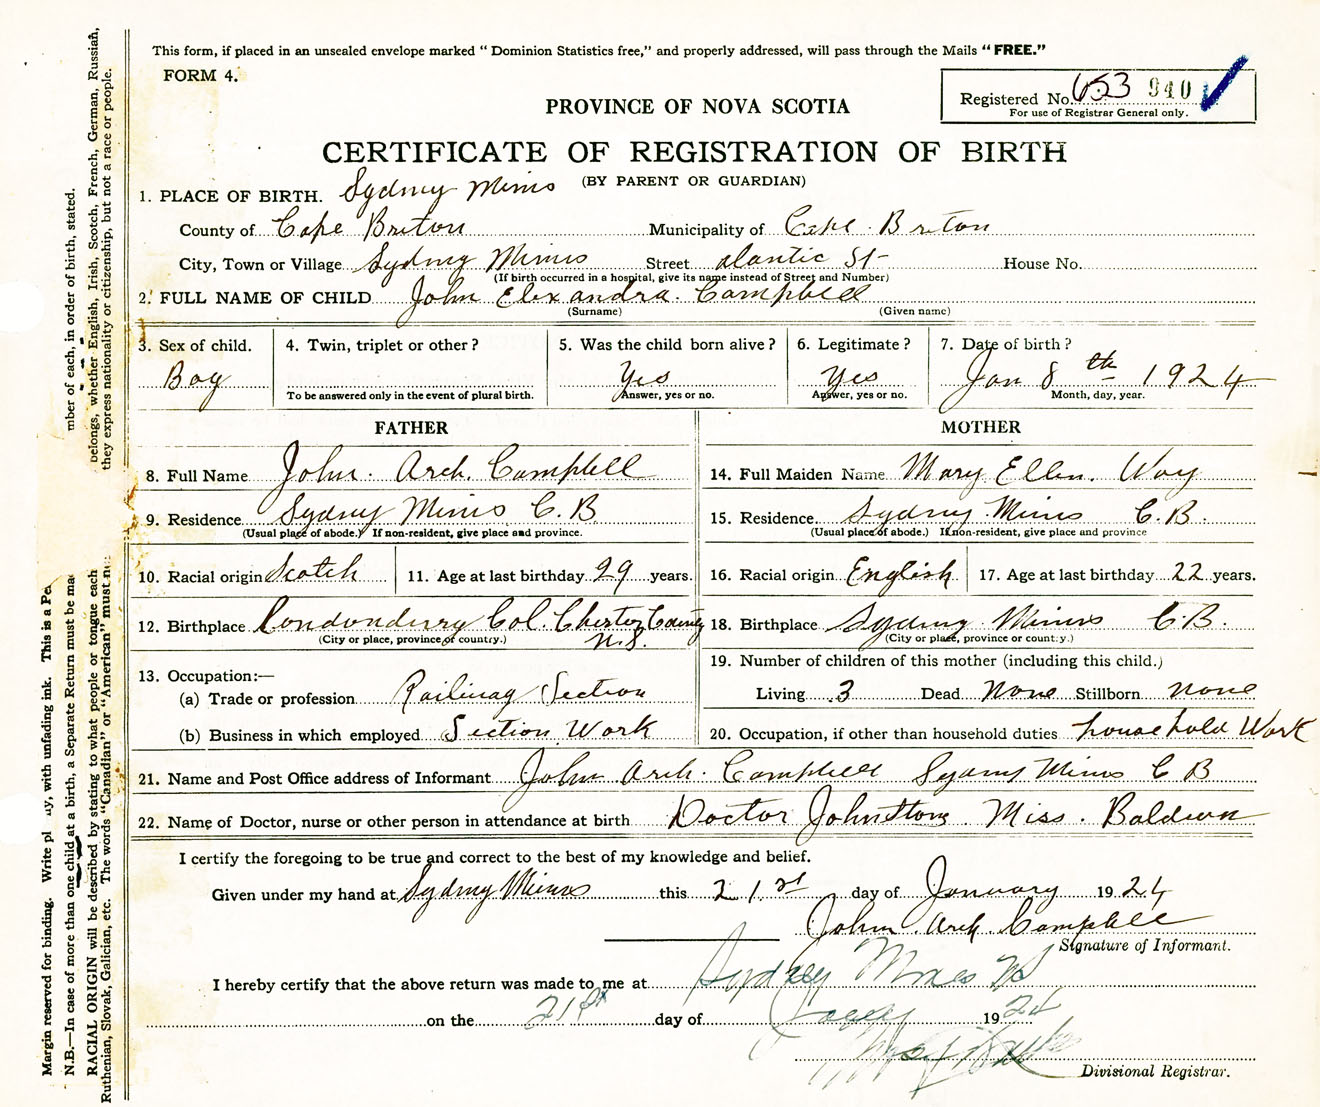 This form, if placed in an unsealed envelope marked “Dominion Statistics free,” and properly addressed, will pass through the Mails “FREE.”
FORM 4.
Registered No. 653 940
For use of Registrar General only.
PROVINCE OF NOVA SCOTIA
CERTIFICATE OF REGISTRATION OF BIRTH
(BY PARENT OR GUARDIAN)
1. PLACE OF BIRTH. Sydney Mines
County of Cape Breton Municipality of Cape Breton
City, Town or Village Sydney Mines Street Atlantic St House No.
(If birth occurred in a hospital, give its name instead of Street and Number)
2. FULL NAME OF CHILD John Elexandra Campbell
(Surname) (Given name)
3. Sex of child. 4. Twin, triplet or other? 5. Was the child born alive? 6. Legitimate? 7. Date of birth?
Boy Yes Yes Jan 8th 1924
To be answered only in the event of plural birth. Answer, yes or no. Answer, yes or no. Month, day, year.
FATHER MOTHER
8. Full Name John. Arch. Campbell 14. Full Maiden Name Mary Ellen. Way
9. Residence Sydney Mines C.B. 15. Residence Sydney Mines C.B.
(Usual place of abode.) If non-resident, give place and province. (Usual place of abode.) If non-resident, give place and province
10. Racial origin Scotch 11. Age at last birthday 29 years. 16. Racial origin English 17. Age at last birthday 22 years.
12. Birthplace Londonderry Col. Chester County N.S. 18. Birthplace Sydney Mines C.B.
(City or place, province or country.) (City or place, province or country.)
13. Occupation:— 19. Number of children of this mother (including this child.)
(a) Trade or profession Railway Section Living 3 Dead None Stillborn none
(b) Business in which employed Section Work 20. Occupation, if other than household duties household Work
21. Name and Post Office address of Informant John Arch. Campbell Sydney Mines C B
22. Name of Doctor, nurse or other person in attendance at birth Doctor Johnstone Miss. Baldwin
I certify the foregoing to be true and correct to the best of my knowledge and belief.
Given under my hand at Sydney Mines this 21st day of January 1924
John. Arch. Campbell
Signature of Informant.
I hereby certify that the above return was made to me at Sydney Mines NS
on the 21st day of Jany 1924
Divisional Registrar.
Margin reserved for binding. Write with unfading ink. This is a
N.B.—In case of more than one child at a birth, a Separate Return must be mber of each, in order of birth, stated.
RACIAL ORIGIN will be described by stating to what people or tongue each belongs, whether English, Irish, Scotch, French, German, Russian,
Ruthenian, Slovak, Galician, etc. The words “Canadian” or “American” must they express nationality or citizenship, but not a race or people.